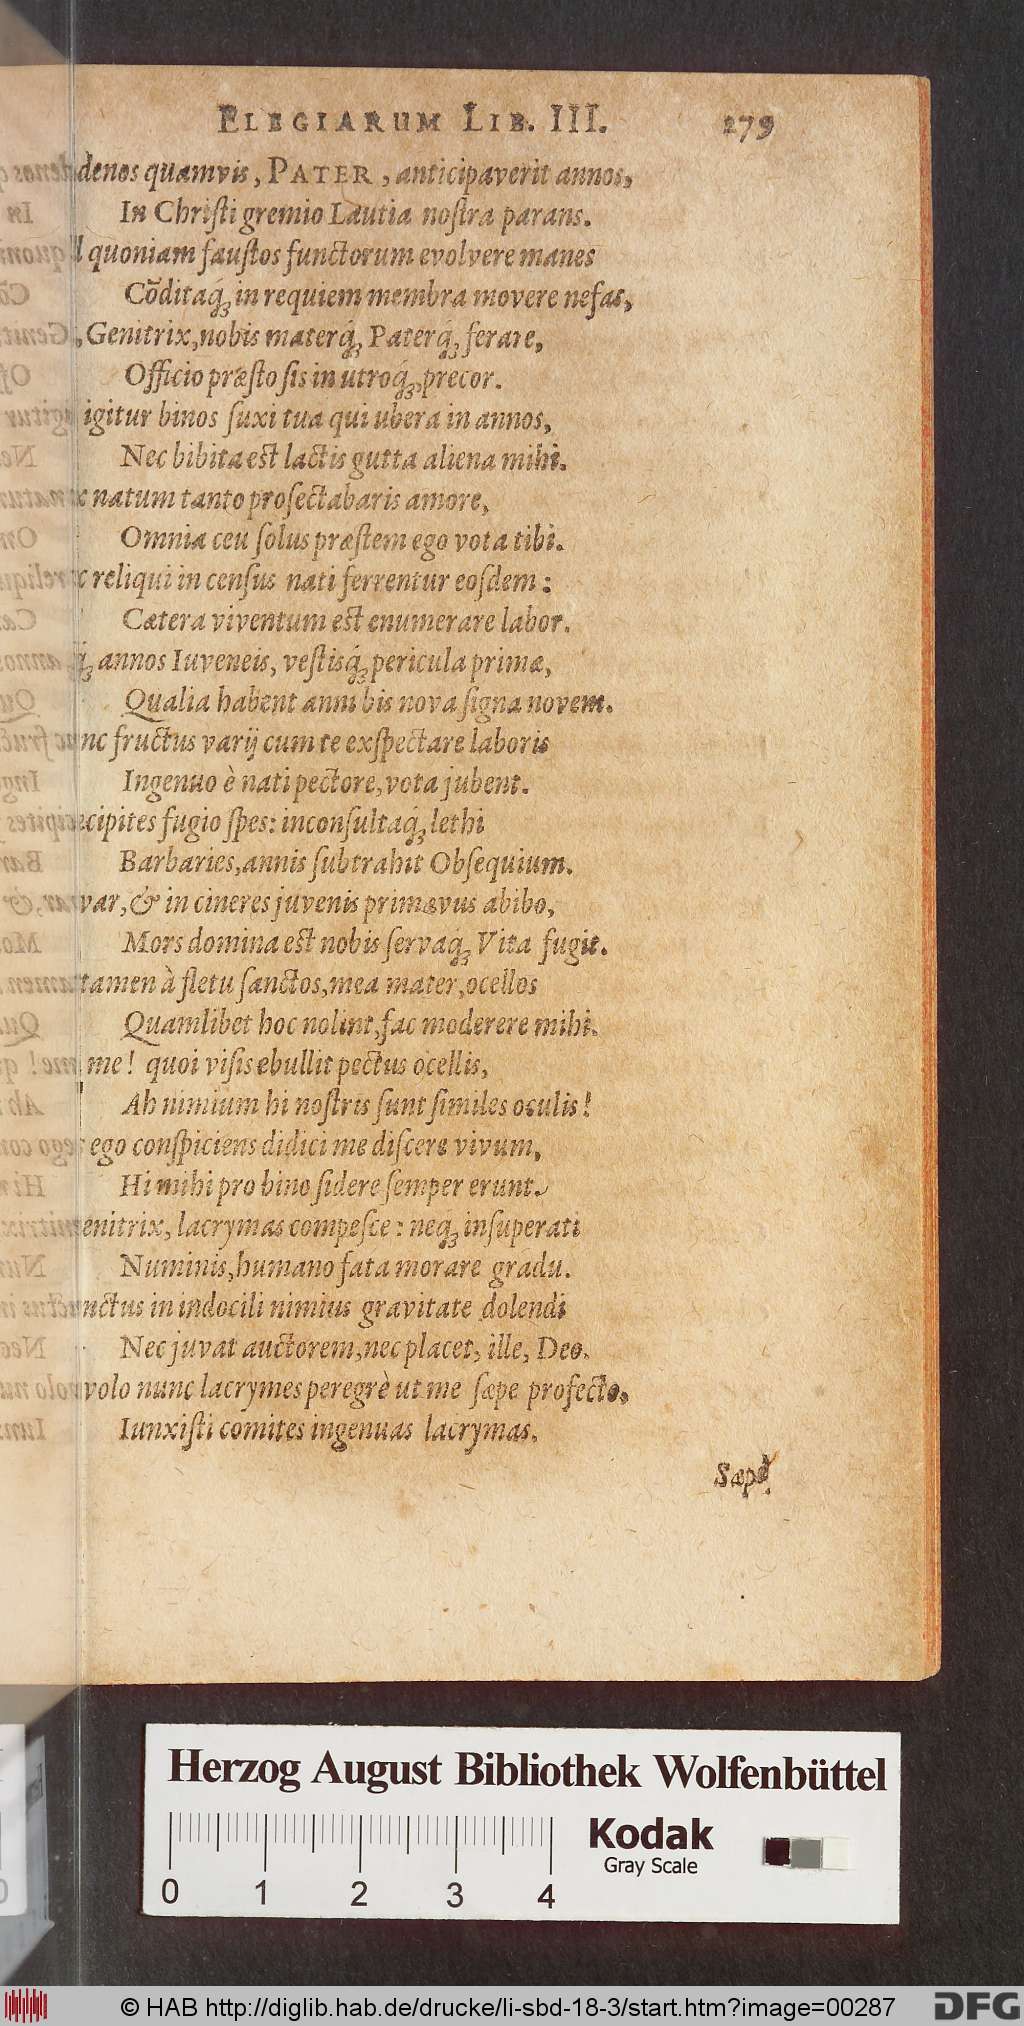 ELEGIARUM LIB. III. 279
denos quamvis, PATER, anticipaverit annos,
In Christi gremio Lautia nostra parans.
quoniam faustos functorum evolvere manes
Cõditaq́; in requiem membra movere nefas,
Genitrix, nobis materq́; Paterq́; ferare,
Officio præsto sis in utroq́;, precor.
igitur binos suxi tua qui ubera in annos,
Nec bibita est lactis gutta aliena mihi.
natum tanto prosectabaris amore,
Omnia ceu solus præstem ego vota tibi.
reliqui in census nati ferrentur eosdem:
Cætera viventum est enumerare labor.
annos Iuveneis, vestisq́; pericula primæ,
Qualia habent anni bis nova signa novem.
nc fructus varij cum te exspectare laboris
Ingenuo è nati pectore, vota jubent.
cipites fugio spes: inconsultaq́; lethi
Barbaries, annis subtrahit Obsequium.
var, & in cineres juvenis primævus abibo,
Mors domina est nobis servaq́; Vita fugit.
tamen à fletu sanctos, mea mater, ocellos
Quamlibet hoc nolint, fac moderere mihi.
me! quoi visis ebullit pectus ocellis,
Ah nimium hi nostris sunt similes oculis!
ego conspiciens didici me discere vivum,
Hi mihi pro bino sidere semper erunt.
enitrix, lacrymas compesce: neq́; insuperati
Numinis, humano fata morare gradu.
nctus in indocili nimius gravitate dolendi
Nec juvat auctorem, nec placet, ille, Deo.
volo nunc lacrymes peregrè ut me sæpe profecto,
Iunxisti comites ingenuas lacrymas.
Sæpè
Herzog August Bibliothek Wolfenbüttel
Kodak
Gray Scale
0 1 2 3 4
© HAB http://diglib.hab.de/drucke/li-sbd-18-3/start.htm?image=00287 DFG